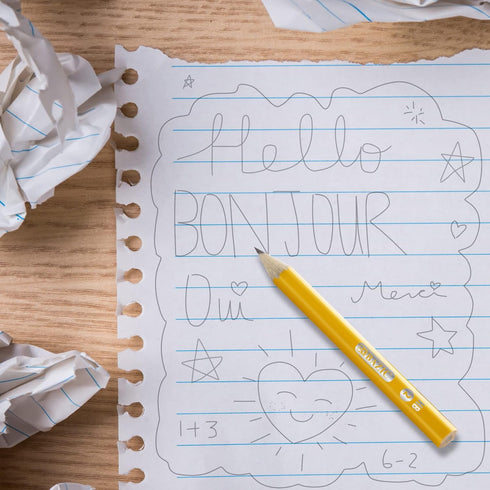 Hello
BONJOUR
Oui Merci
1+3
6-2